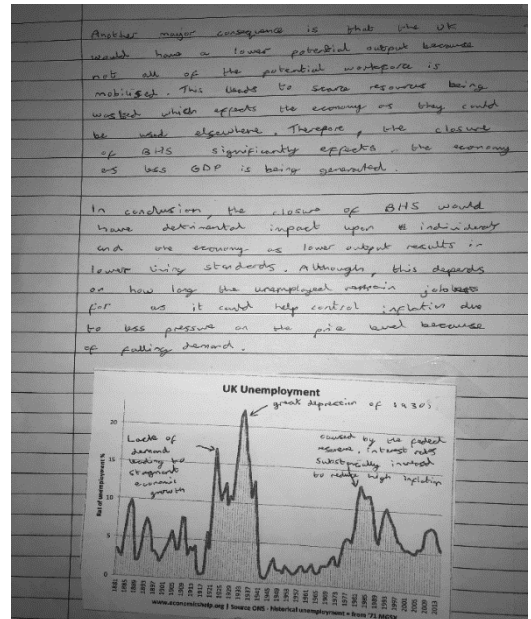 Another major consequence is that the UK
would have a lower potential output because
not all of the potential workforce is
mobilised. This leads to scarce resources being
wasted which effects the economy as they could
be used elsewhere. Therefore, the closure
of BHS significantly effects the economy
as less GDP is being generated.
In conclusion, the closure of BHS would
have detrimental impact upon individuals
and the economy as lower output results in
lower living standards. Although, this depends
on how long the unemployed remain jobless
for as it could help control inflation due
to less pressure on the price level because
of falling demand.
UK Unemployment
great depression of 1930s
Lack of
demand
leading to
stagnant
economic
growth
caused by the federal
reserve, interest rates
substantially
to reduce high inflation
Rate of unemployment %
20
15
10
5
0
1881 1885 1889 1893 1897 1901 1905 1909 1913 1917 1921 1925 1929 1933 1937 1941 1945 1949 1953 1957 1961 1965 1969 1973 1977 1981 1985 1989 1993 1997 2001 2005 2009 2013
www.economicshelp.org | Source ONS - historical unemployment + from '71 MGSX